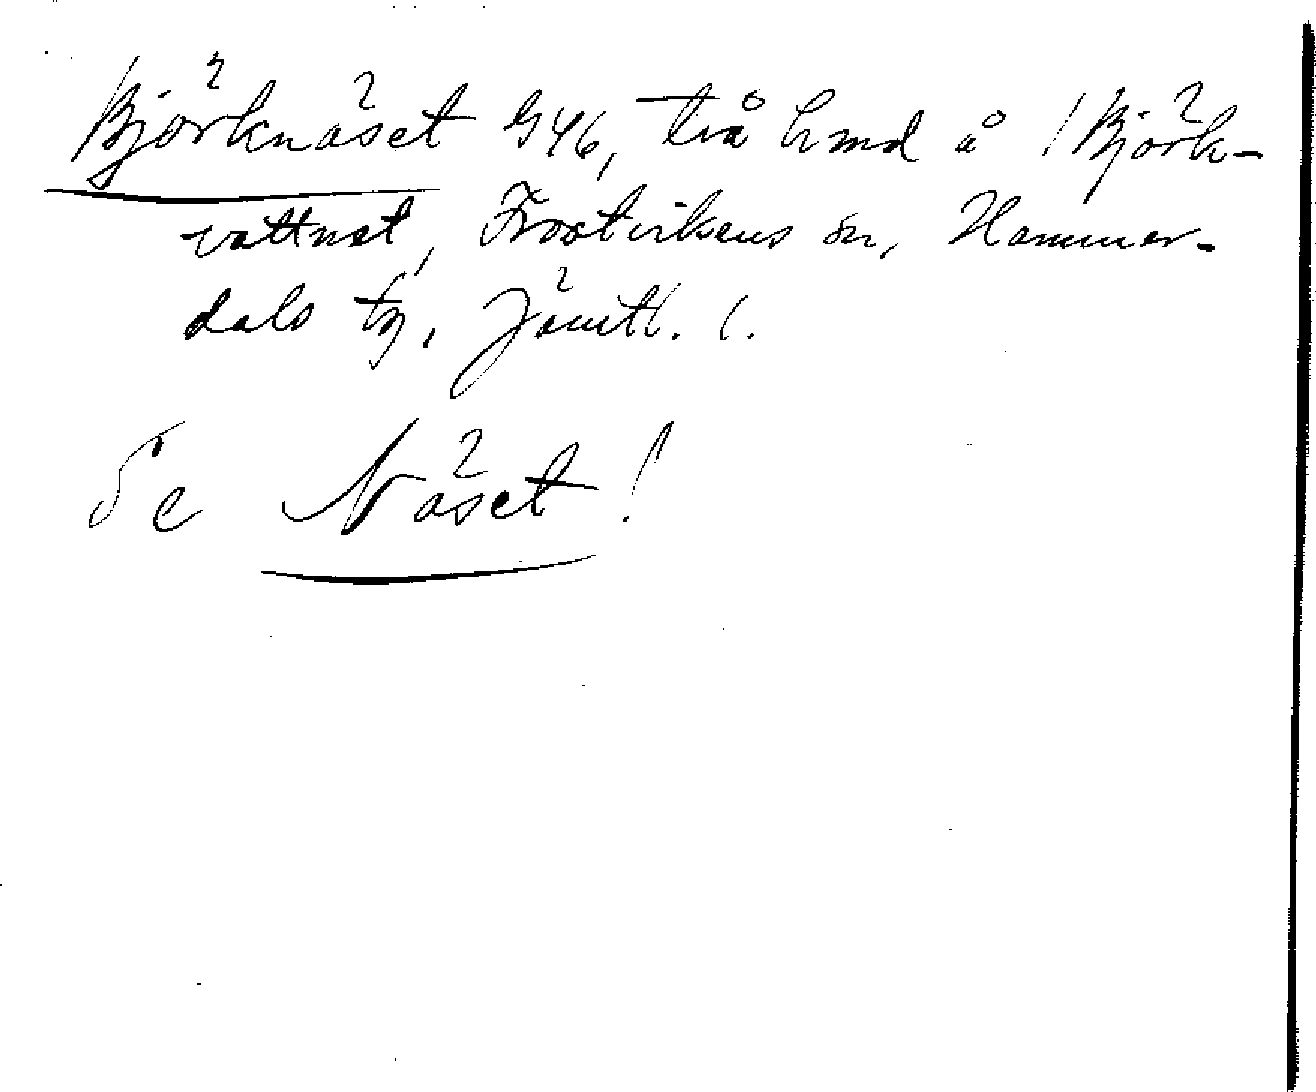 Björknäset G46, två hmd å Björk-
vattnet, Frostvikens sn, Hammer-
dals tg, Jämtl. l.
Se Näset!